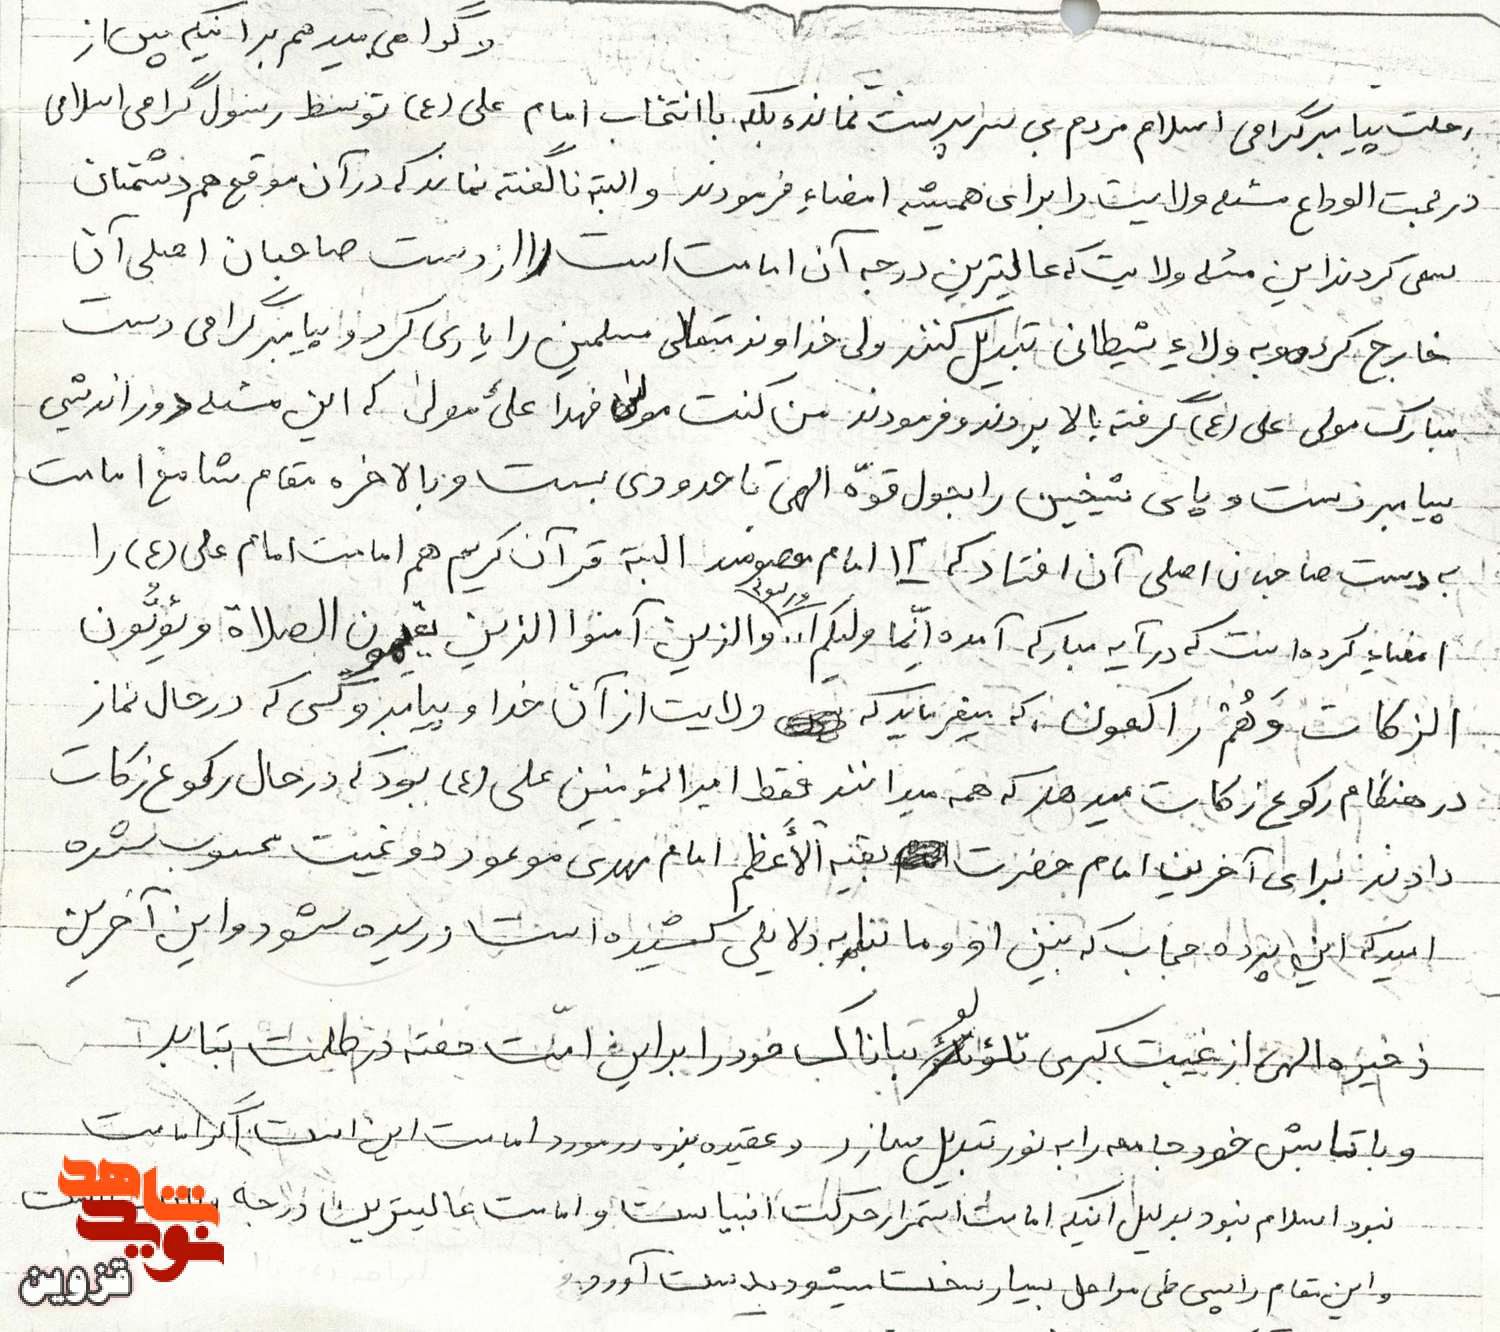 و گواهی میدهم بر اینکه پس از
رحلت پیامبر گرامی اسلام مردم بی سرپرست نمانده بلکه با انتخاب امام علی (ع) توسط رسول گرامی اسلامی
در حجت الوداع مسئله ولایت را برای همیشه امضاء فرمودند والبته ناگفته نماند که در آن موقع هم دشمنان
سعی کردند این مسئله ولایت که عالیترین درجه آن امامت است را از دست صاحبان اصلی آن
خارج کرده و به ولاء شیطانی تبدیل کنند ولی خداوند متعالی مسلمین را یاری کرد و پیامبر گرامی دست
مبارک مولی علی (ع) گرفته بالا بردند و فرمودند من کنت مولا فهذا علیٌ مولیٰ که این مسئله دور اندیشی
پیامبر دست و پای شیخین را بحول قوّه الهی تا حدودی بست و بالاخره مقام شامخ امامت
به دست صاحبان اصلی آن افتاد که ۱۲ امام معصومند البته قرآن کریم هم امامت امام علی (ع) را
امضاء کرده است که در آیه مبارکه آمده انّما ولیکم الله ورسوله والذین آمنوا الذین یقیمون الصلاة و یؤتُون
الزکات وَهُمْ راکعون. که میفرماید که ولایت از آن خدا و پیامبر و کسی که در حال نماز
در هنگام رکوع زکات میدهد که همه میدانند فقط امیرالمؤمنین علی (ع) بود که در حال رکوع زکات
دادند برای آخرین امام حضرت بقیه الأعظم امام مهدی موعود دو غیبت محسوب شده
امید که این پرده حجاب که بین او و ما بنا به دلایلی کشیده است دریده شود و این آخرین
ذخیره الهی از غیبت کبری تلؤلؤ تابناک خود را بر این امّت خفته در ظلمت بتاباند
و با تابش خود جامعه را به نور تبدیل سازد و عقیده بنده در مورد امامت این است اگر امامت
نبود اسلام نبود بدلیل اینکه امامت استمرار حرکت انبیاست و امامت عالیترین درجه
و این مقام را پس طی مراحل بسیار سخت میشود بدست آورد و
شاهد
نوید
قزوین